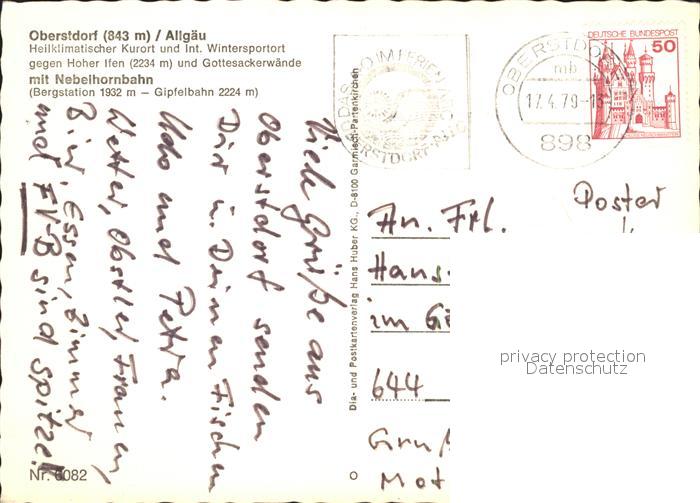 Oberstdorf (843 m) / Allgäu
Heilklimatischer Kurort und Int. Wintersportort
gegen Hoher Ifen (2234 m) und Gottesackerwände
mit Nebelhornbahn
(Bergstation 1932 m — Gipfelbahn 2224 m)
Viele Grüße aus
Oberstdorf senden
Dir u. Deinen Fischen
Udo und Petra.
Wetter, Obstler, Frauen,
B.W., Essen, Zimmer
und FVB sind spitze!
Nr. 6082
Dia- und Postkartenverlag Hans Huber KG., D-8100 Garmisch-Partenkirchen
DAS IM FERIEN
OBERSTDORF
OBERSTDORF
mb
17.4.79-13
898
DEUTSCHE BUNDESPOST
50
Poster
An. Frl.
Hans
im
644
Gruß
Mot
privacy protection
Datenschutz